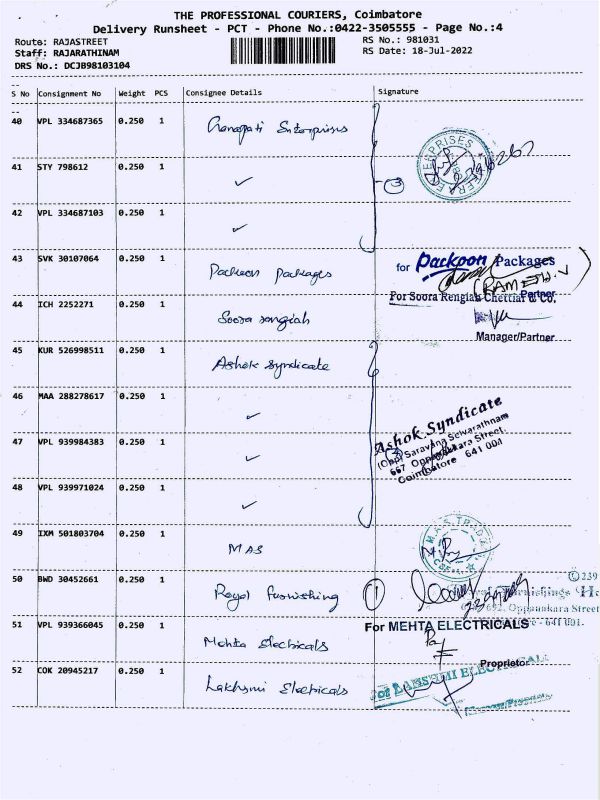 THE PROFESSIONAL COURIERS, Coimbatore
Delivery Runsheet - PCT - Phone No.:0422-3505555 - Page No.:4
Route: RAJASTREET
RS No.: 981031
Staff: RAJARATHINAM
RS Date: 18-Jul-2022
DRS No.: DCJB98103104
S No Consignment No Weight PCS Consignee Details Signature
40 VPL 334687365 0.250 1 Ganapati Enterprises
ERPRISES
41 STY 798612 0.250 1 ✓ ③
42 VPL 334687103 0.250 1 ✓
43 SVK 30107064 0.250 1 Packoon Packages
for Packoon Packages
(RAMESH.V)
Partner
44 ICH 2252271 0.250 1 Soora rengiah
For Soora Rengiah Chettiar & Co.
Manager/Partner
45 KUR 526998511 0.250 1 Ashok Syndicate
46 MAA 288278617 0.250 1 ✓
Ashok Syndicate
(Opp) Saravana Selvarathnam
667 Oppanakara Street,
Coimbatore 641 001
47 VPL 939984383 0.250 1 ✓
48 VPL 939971024 0.250 1 ✓
49 IXM 501803704 0.250 1 MAS
50 BWD 30452661 0.250 1 Royal furnishing ①
239
692, Oppanakara Street
641 001.
51 VPL 939366045 0.250 1 Mehta Electricals
For MEHTA ELECTRICALS
Proprietor
52 COK 20945217 0.250 1 Lakhsmi Electricals
For LAKSHMI ELECTRICALS